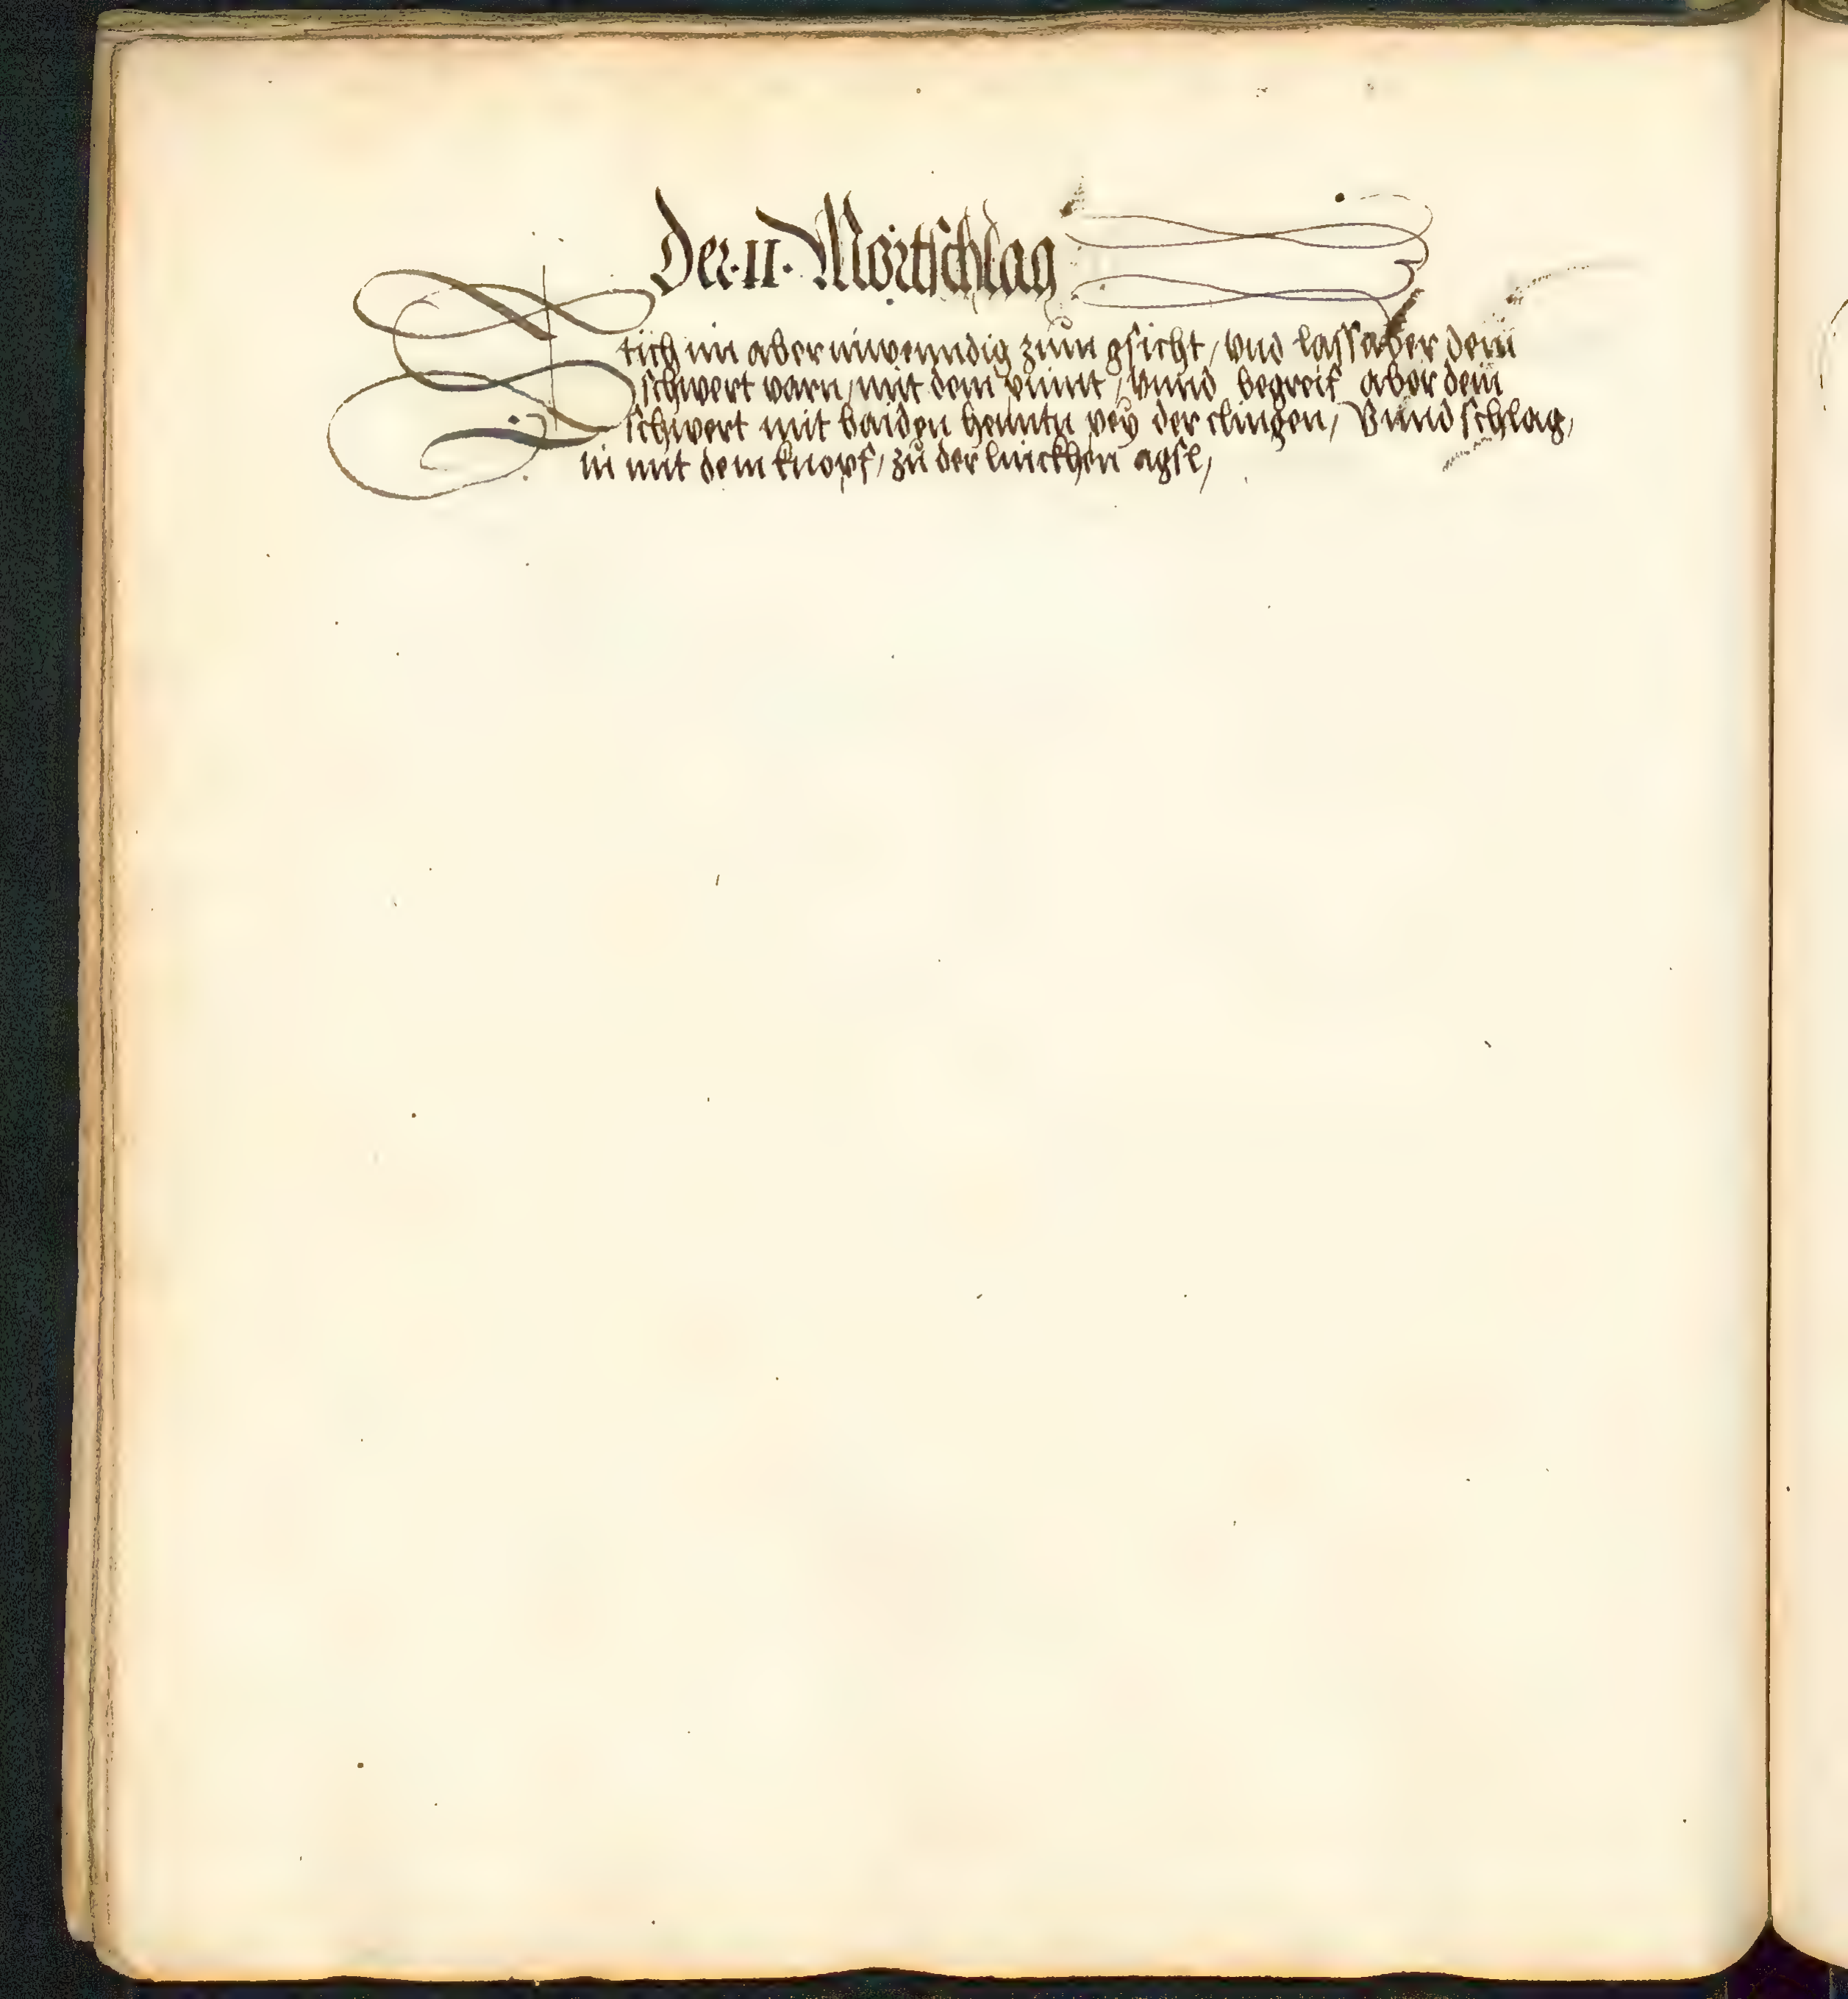 Der · II · Mortschlag
Stich im aber inwenndig zum gsicht / vnd lass aber dein
schwert varn / mit dem punt / vnnd begreif aber dein
schwert mit baiden henntn pey der clingen / Vnnd schlag /
in mit dem knopf / zu der linckhen agsl /